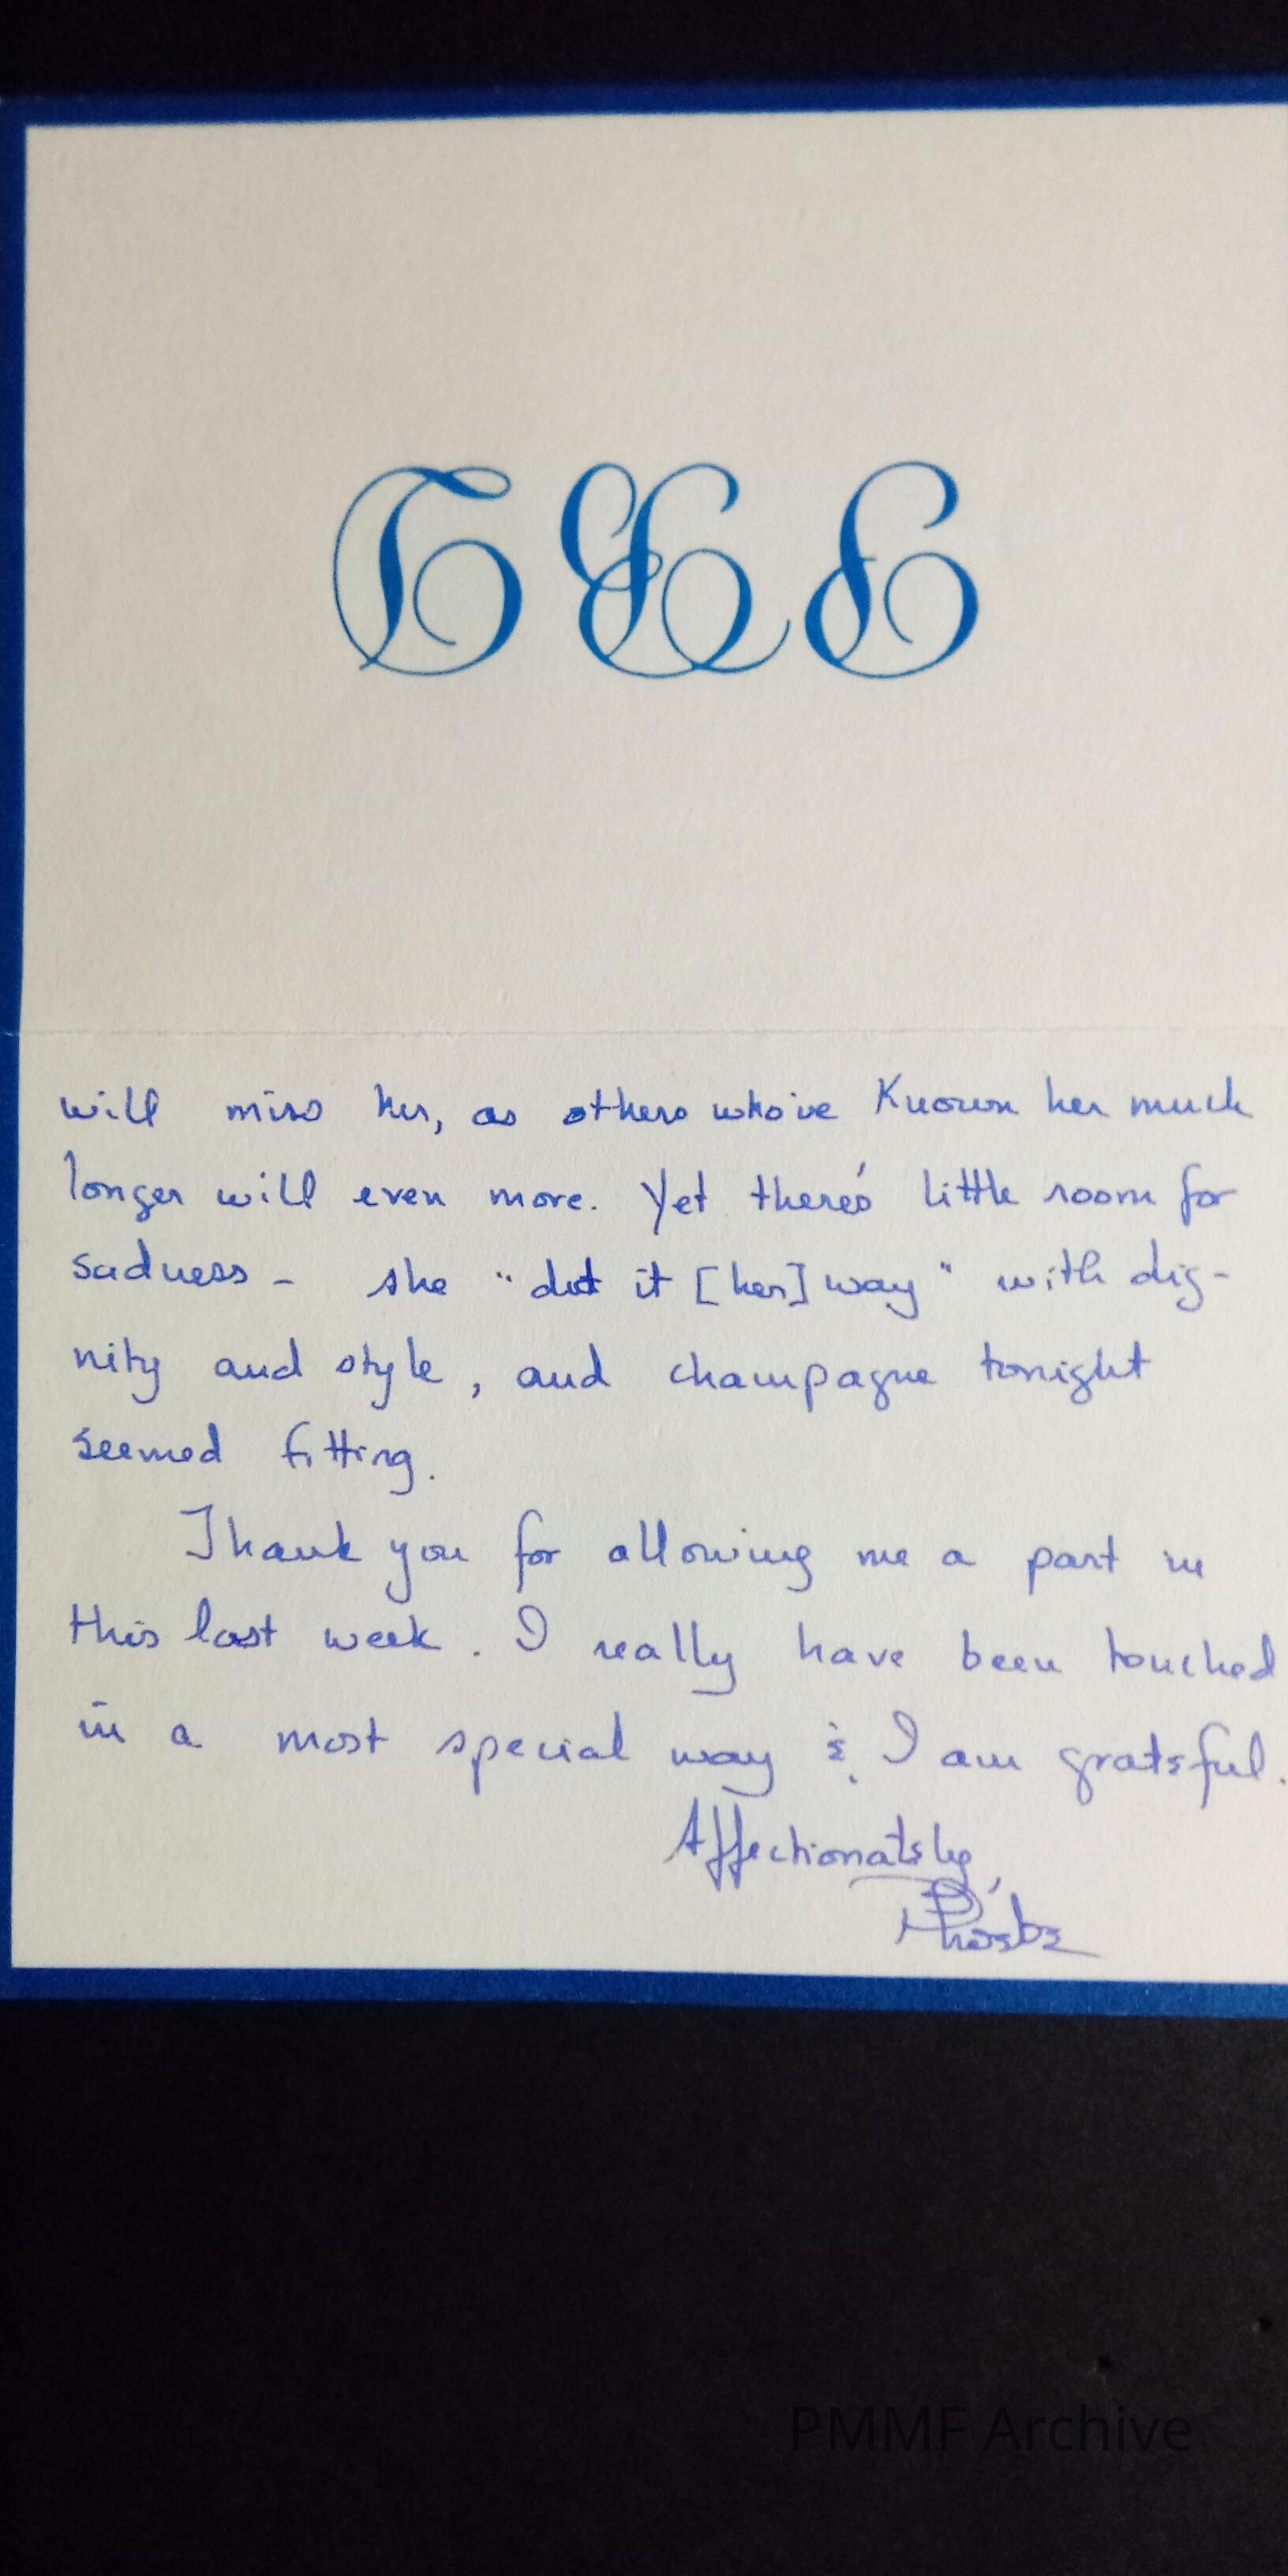 will miss her, as others who've known her much
longer will even more. Yet there's little room for
sadness - she "did it [her] way" with dig-
nity and style, and champagne tonight
seemed fitting.
Thank you for allowing me a part in
this last week. I really have been touched
in a most special way & I am grateful.
Affectionately,
Phoebe
PMMF Archive